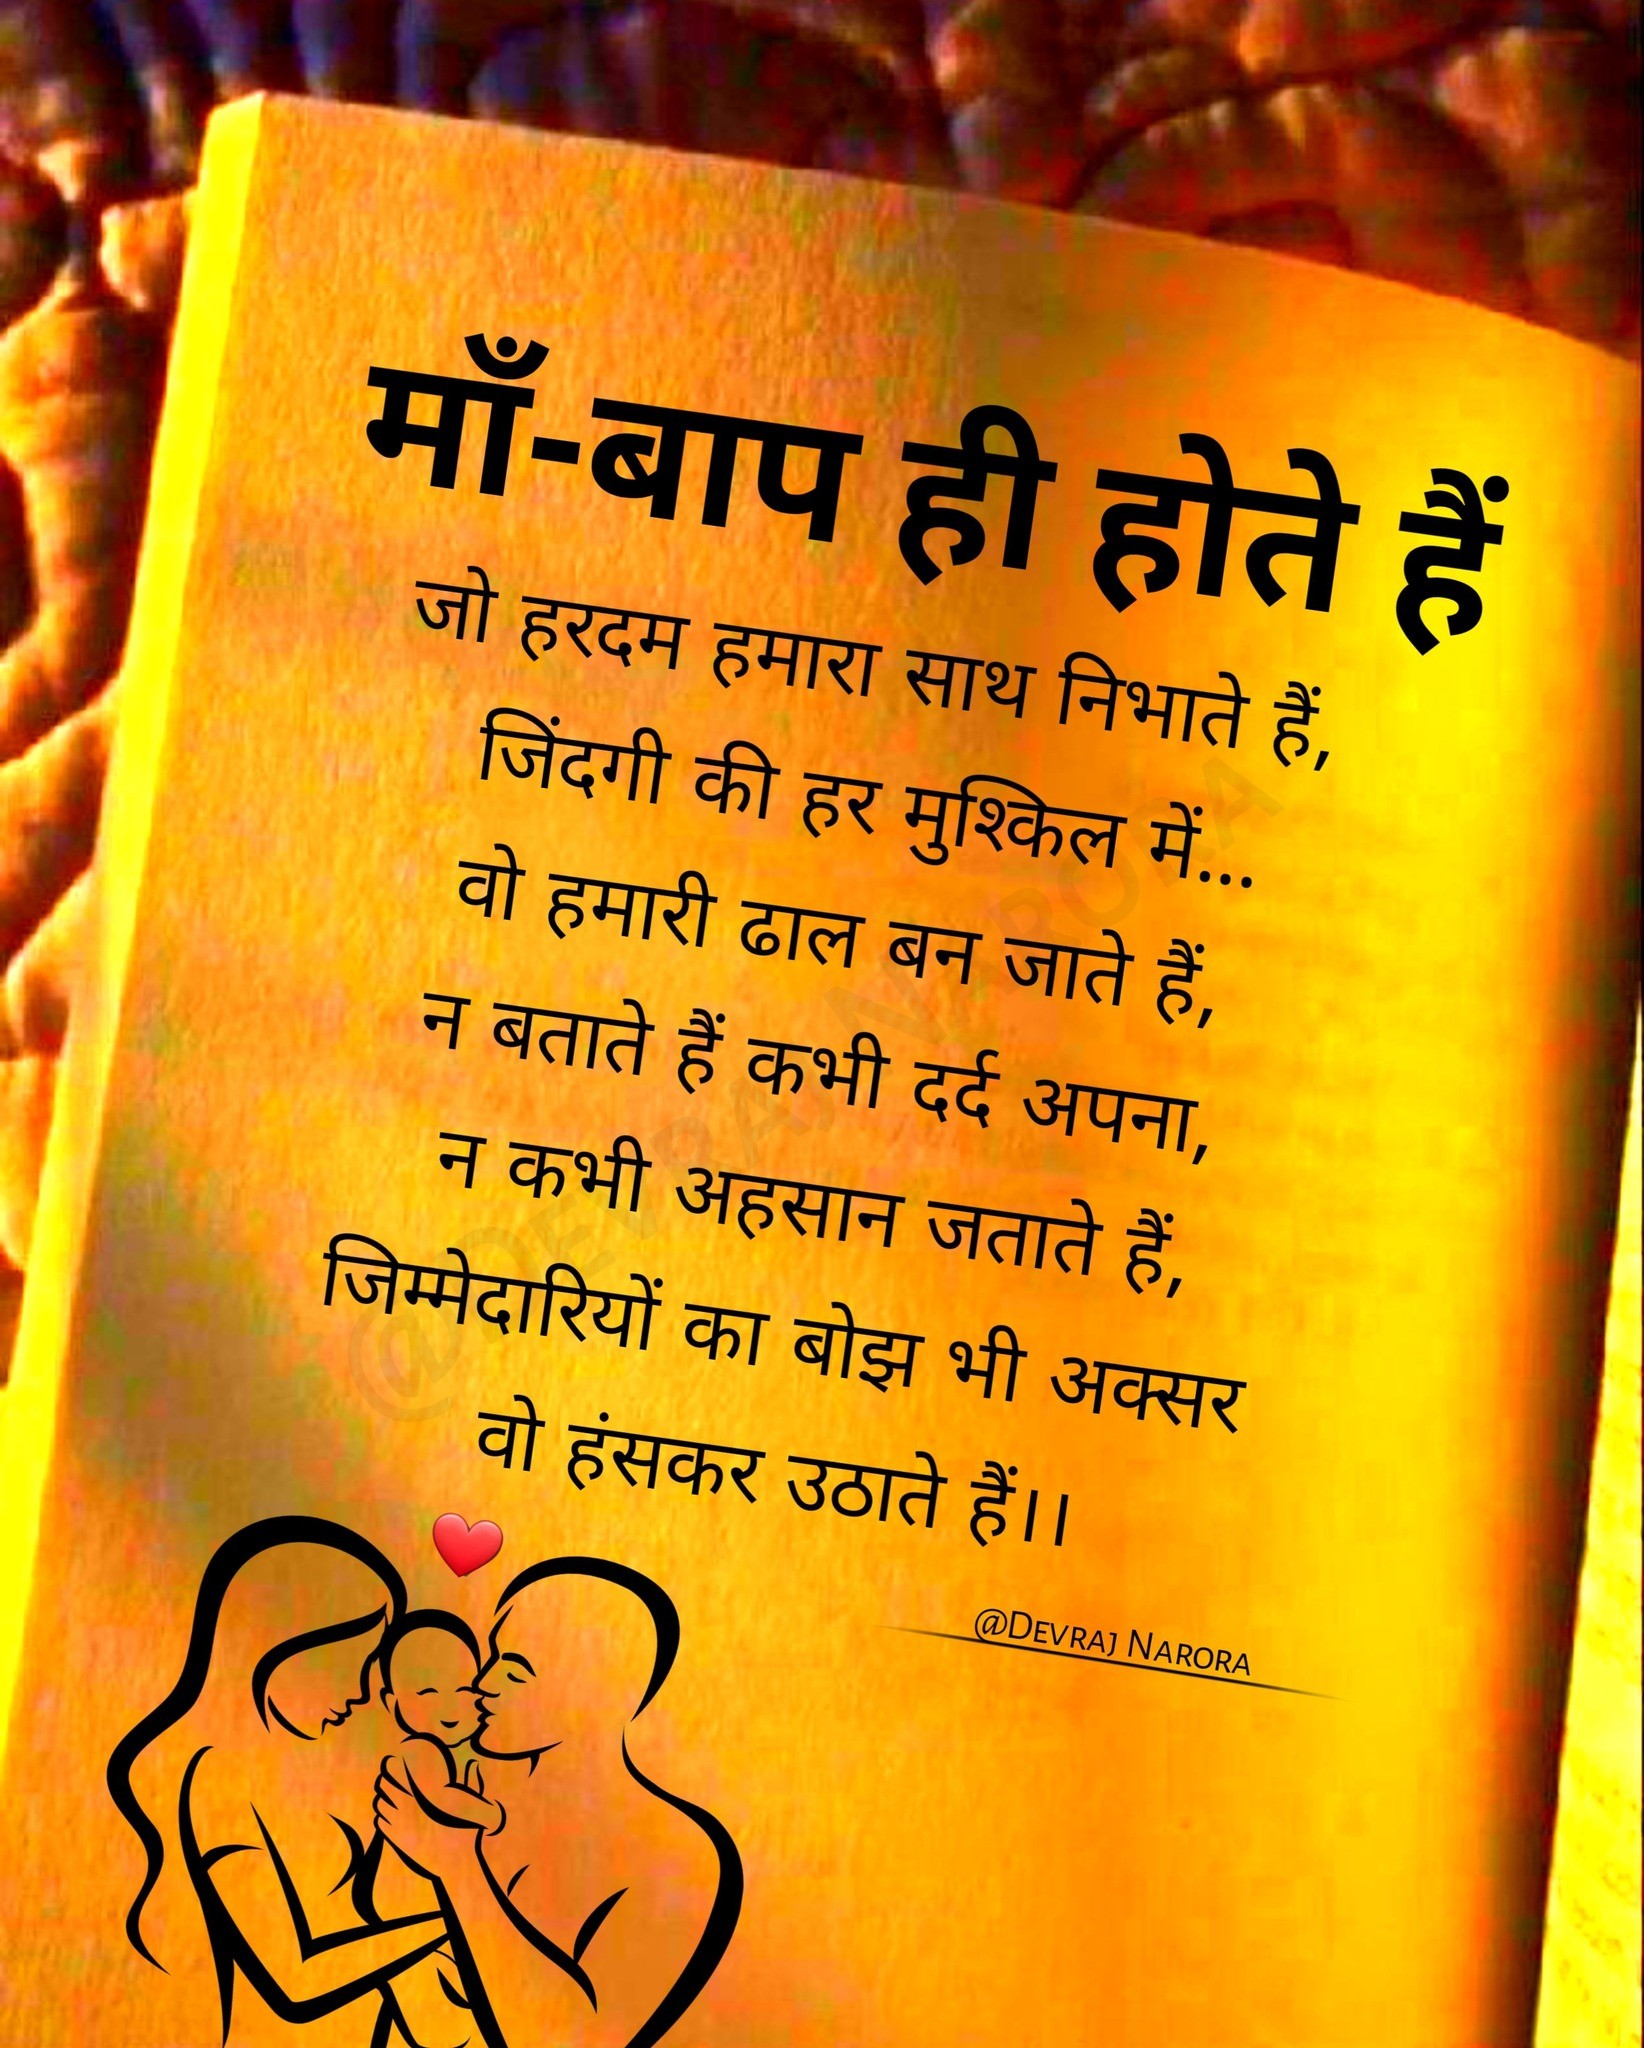 माँ-बाप ही होते हैं
जो हरदम हमारा साथ निभाते हैं,
जिंदगी की हर मुश्किल में...
वो हमारी ढाल बन जाते हैं,
न बताते हैं कभी दर्द अपना,
न कभी अहसान जताते हैं,
जिम्मेदारियों का बोझ भी अक्सर
वो हंसकर उठाते हैं।।
@DEVRAJ NARORA
@DEVRAJ NARORA